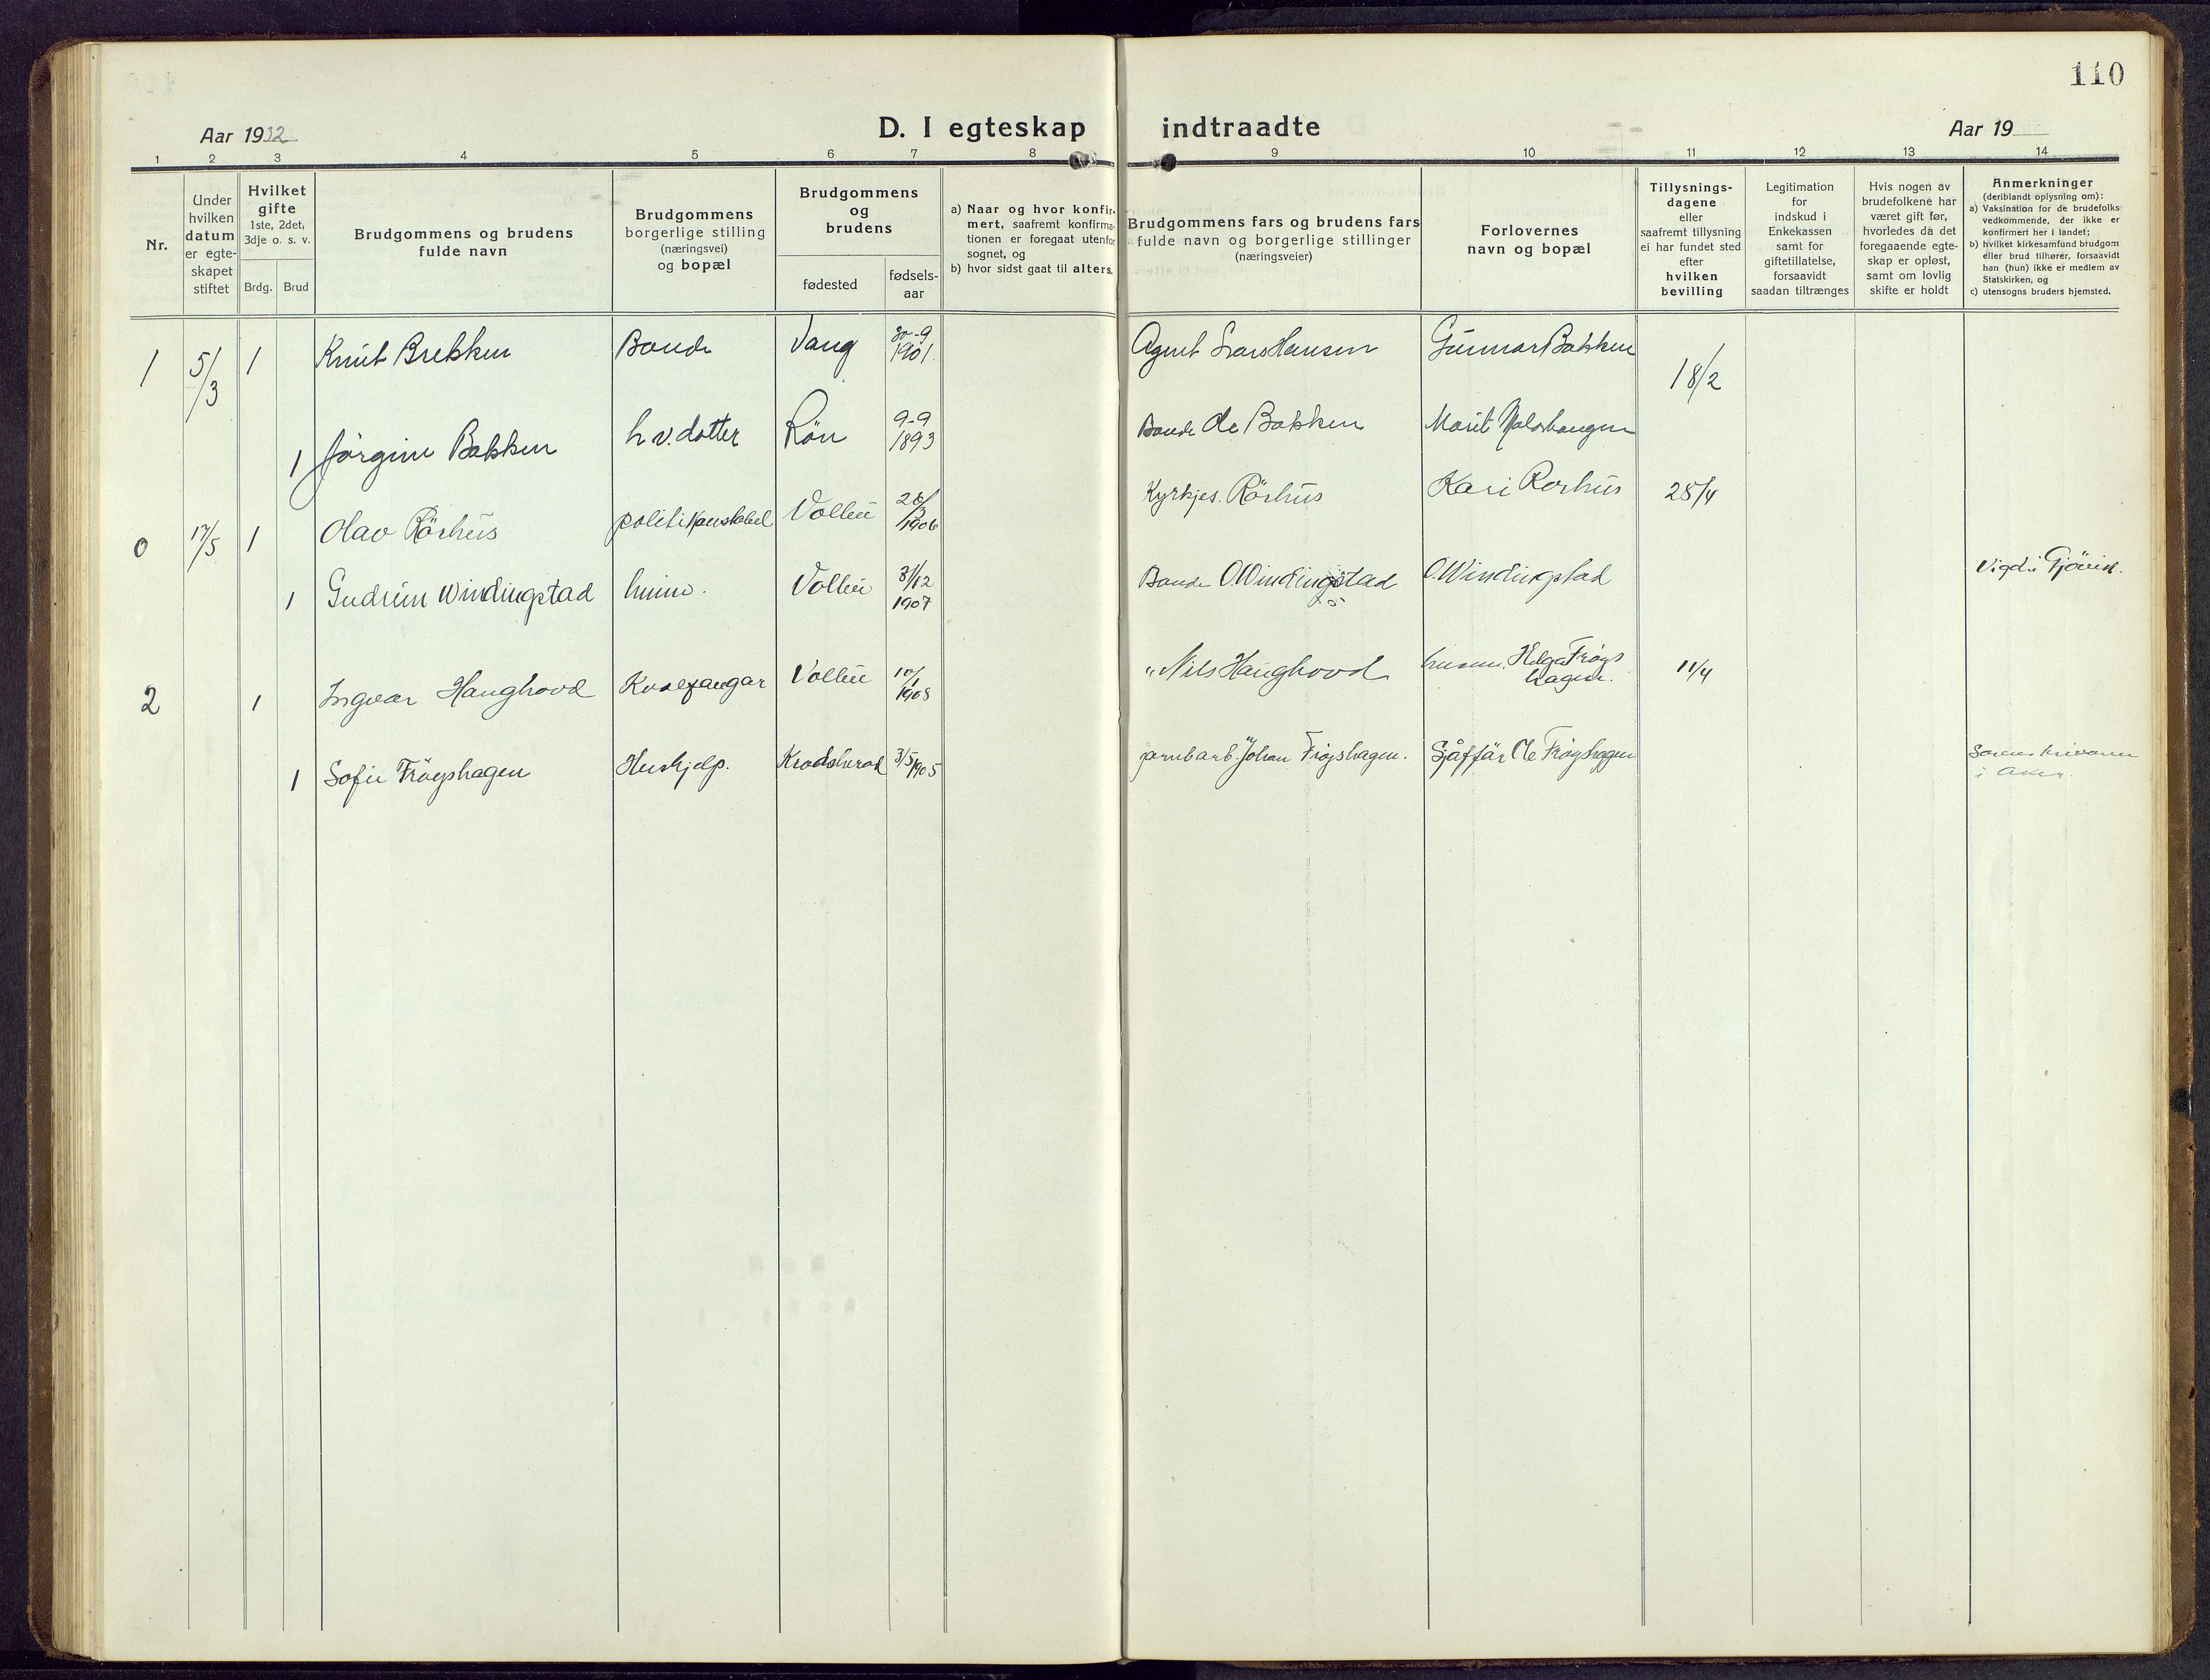 110
Aar 1932
D. I egteskap indtraadte
Aar 19
1 2 3 4 5 6 7 8 9 10 11 12 13 14
Nr.
Under
hvilken
datum
er egte-
skapet
stiftet
Hvilket
gifte
1ste, 2det,
3dje o. s. v.
Brdg. Brud
Brudgommens og brudens
fulde navn
Brudgommens
borgerlige stilling
(næringsvei)
og bopæl
Brudgommens
og
brudens
fødested
fødsels-
aar
a) Naar og hvor konfir-
mert, saafremt konfirma-
tionen er foregaat utenfor
sognet, og
b) hvor sidst gaat til alters.
Brudgommens fars og brudens fars
fulde navn og borgerlige stillinger
(næringsveier)
Forlovernes
navn og bopæl
Tillysnings-
dagene
eller
saafremt tillysning
ei har fundet sted
efter
hvilken
bevilling
Legitimation
for
indskud i
Enkekassen
samt for
giftetillatelse,
forsaavidt
saadan tiltrænges
Hvis nogen av
brudefolkene har
været gift før,
hvorledes da det
foregaaende egte-
skap er opløst,
samt om lovlig
skifte er holdt
Anmerkninger
(deriblandt oplysning om):
a) Vaksination for de brudefolks
vedkommende, der ikke er
konfirmert her i landet;
b) hvilket kirkesamfund brudgom
eller brud tilhører, forsaavidt
han (hun) ikke er medlem av
Statskirken, og
c) utensogns bruders hjemsted.
1 5/3 1 Knut Brekken Bonde Vang 30-9 1901 Agent Lars Hansen Gunnar Bakken 18/2
1 Jørgine Bakken h.v. dotter Røn 9-9 1893 Bonde Ole Bakken Marit
0 17/5 1 Olav Rörhus politikonstabel Vollen 26/3 1906 Kyrkjes. Rörhus Kari Rorhus 25/4
1 Gudrun Windingstad heime. Vollen 31/12 1907 Bonde O. Windingstad O. Windingstad Vigdi i Gjövik.
2 1 Ingvar Haughovd Kvalfangar Vollen 10/1 1905 " Nils Haughovd husm. Helga Frøys
hagen. 11/4
1 Sofie Frøyshagen Hushjelp. Krødsherad 3/5 1905 jarnbarb. Johan Frøyshagen. Sjåffør Ole Frøyshagen Sorenskrivaren
i Aker.